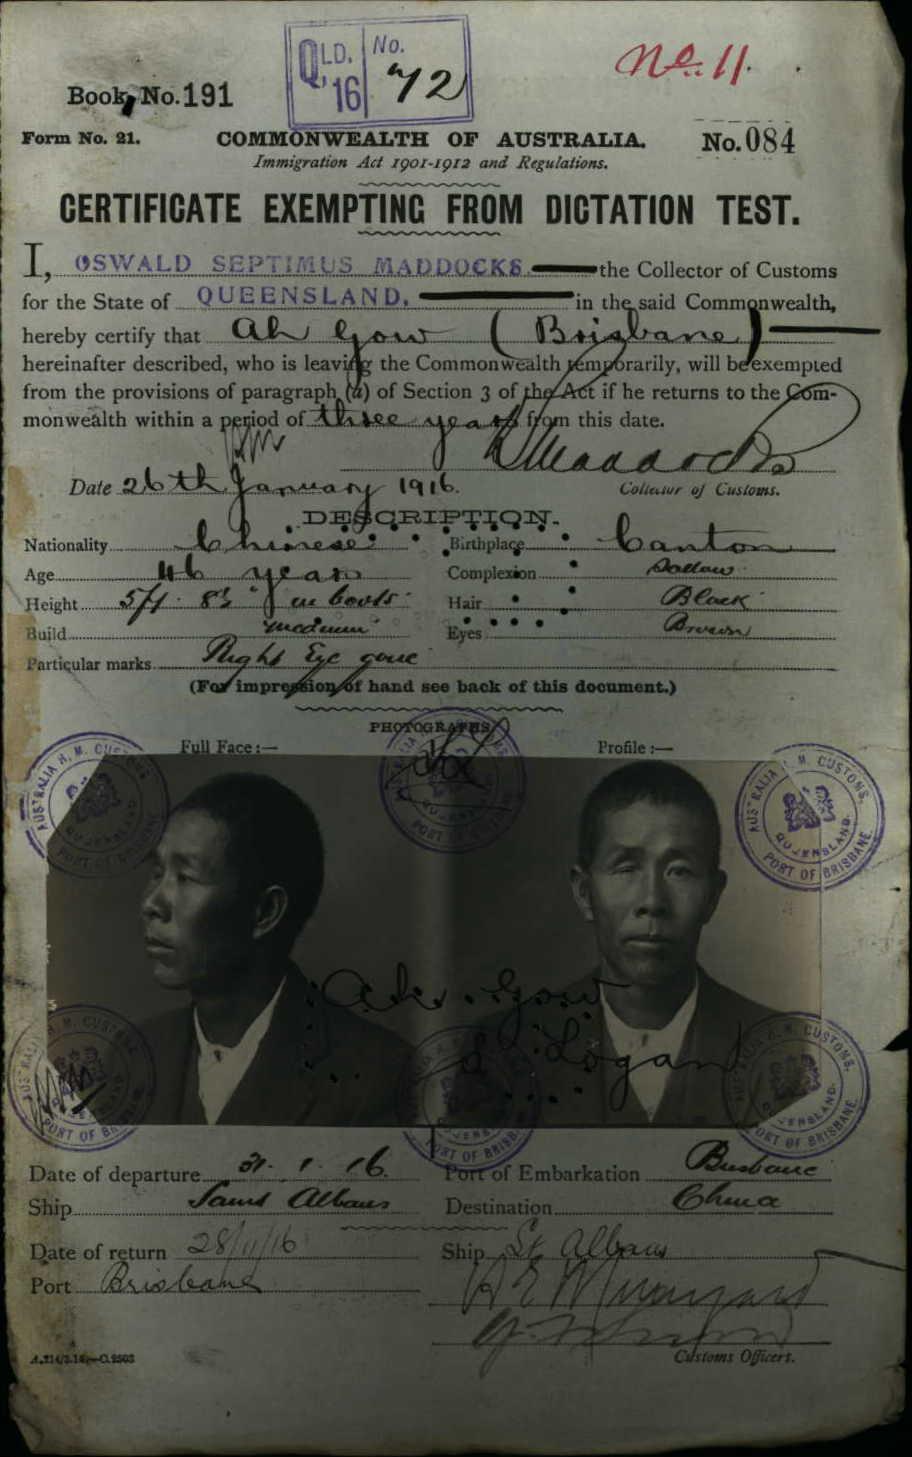 QLD. 16 No. 72
No. 11.
Book No. 191
Form No. 21. COMMONWEALTH OF AUSTRALIA. No. 084
Immigration Act 1901-1912 and Regulations.
CERTIFICATE EXEMPTING FROM DICTATION TEST.
I, OSWALD SEPTIMUS MADDOCKS. the Collector of Customs
for the State of QUEENSLAND, in the said Commonwealth,
hereby certify that Ah Gow (Brisbane)
hereinafter described, who is leaving the Commonwealth temporarily, will be exempted
from the provisions of paragraph (a) of Section 3 of the Act if he returns to the Com-
monwealth within a period of three years from this date.
Maddocks
Date 26th January 1916. Collector of Customs.
DESCRIPTION.
Nationality Chinese Birthplace Canton
Age 46 years Complexion Sallow
Height 5ft 8½" in boots Hair Black
Build medium Eyes Brown
Particular marks Right Eye gone
(For impression of hand see back of this document.)
PHOTOGRAPHS
Full Face:— Profile:—
AUSTRALIA H. M. CUSTOMS. QUEENSLAND. PORT OF BRISBANE
Ah Gow
Logan
Date of departure 31. 1. 16. Port of Embarkation Brisbane
Ship Saint Albans Destination China
Date of return 28/11/16 Ship St Albans
Port Brisbane
Customs Officers.